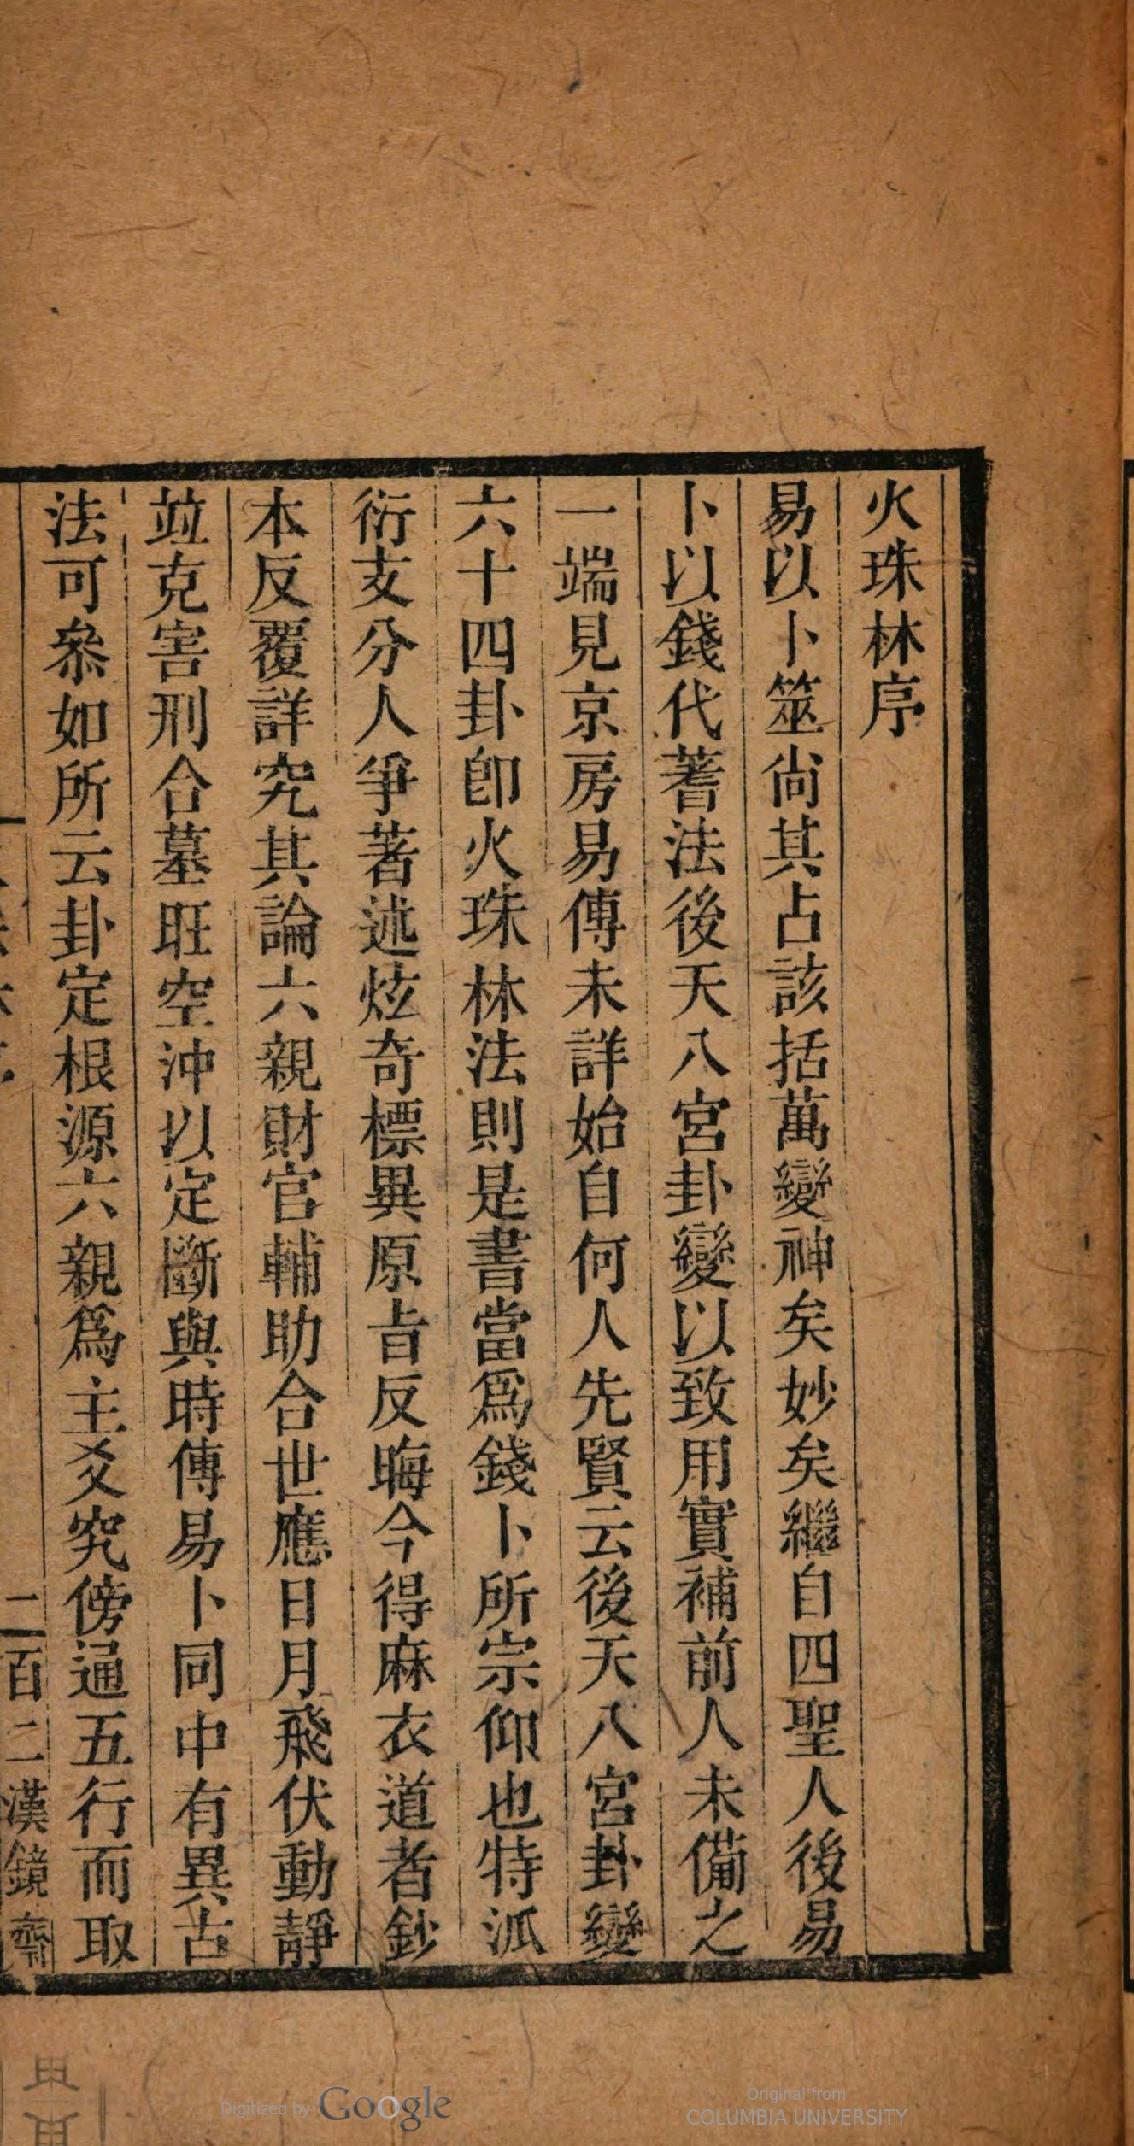 火珠林序
易以卜筮尙其占該括萬變神矣妙矣繼自四聖人後易
卜以錢代蓍法後天八宮卦變以致用實補前人未備之
一端見京房易傳未詳始自何人先賢云後天八宮卦變
六十四卦卽火珠林法則是書當爲錢卜所宗仰也特派
衍支分人爭著述炫奇標異原旨反晦今得麻衣道者鈔
本反覆詳究其論六親財官輔助合世應日月飛伏動靜
竝克害刑合墓旺空沖以定斷與時傳易卜同中有異古
法可叅如所云卦定根源六親爲主爻究傍通五行而取
二百二漢鏡齋
Digitized by Google
Original from
COLUMBIA UNIVERSITY